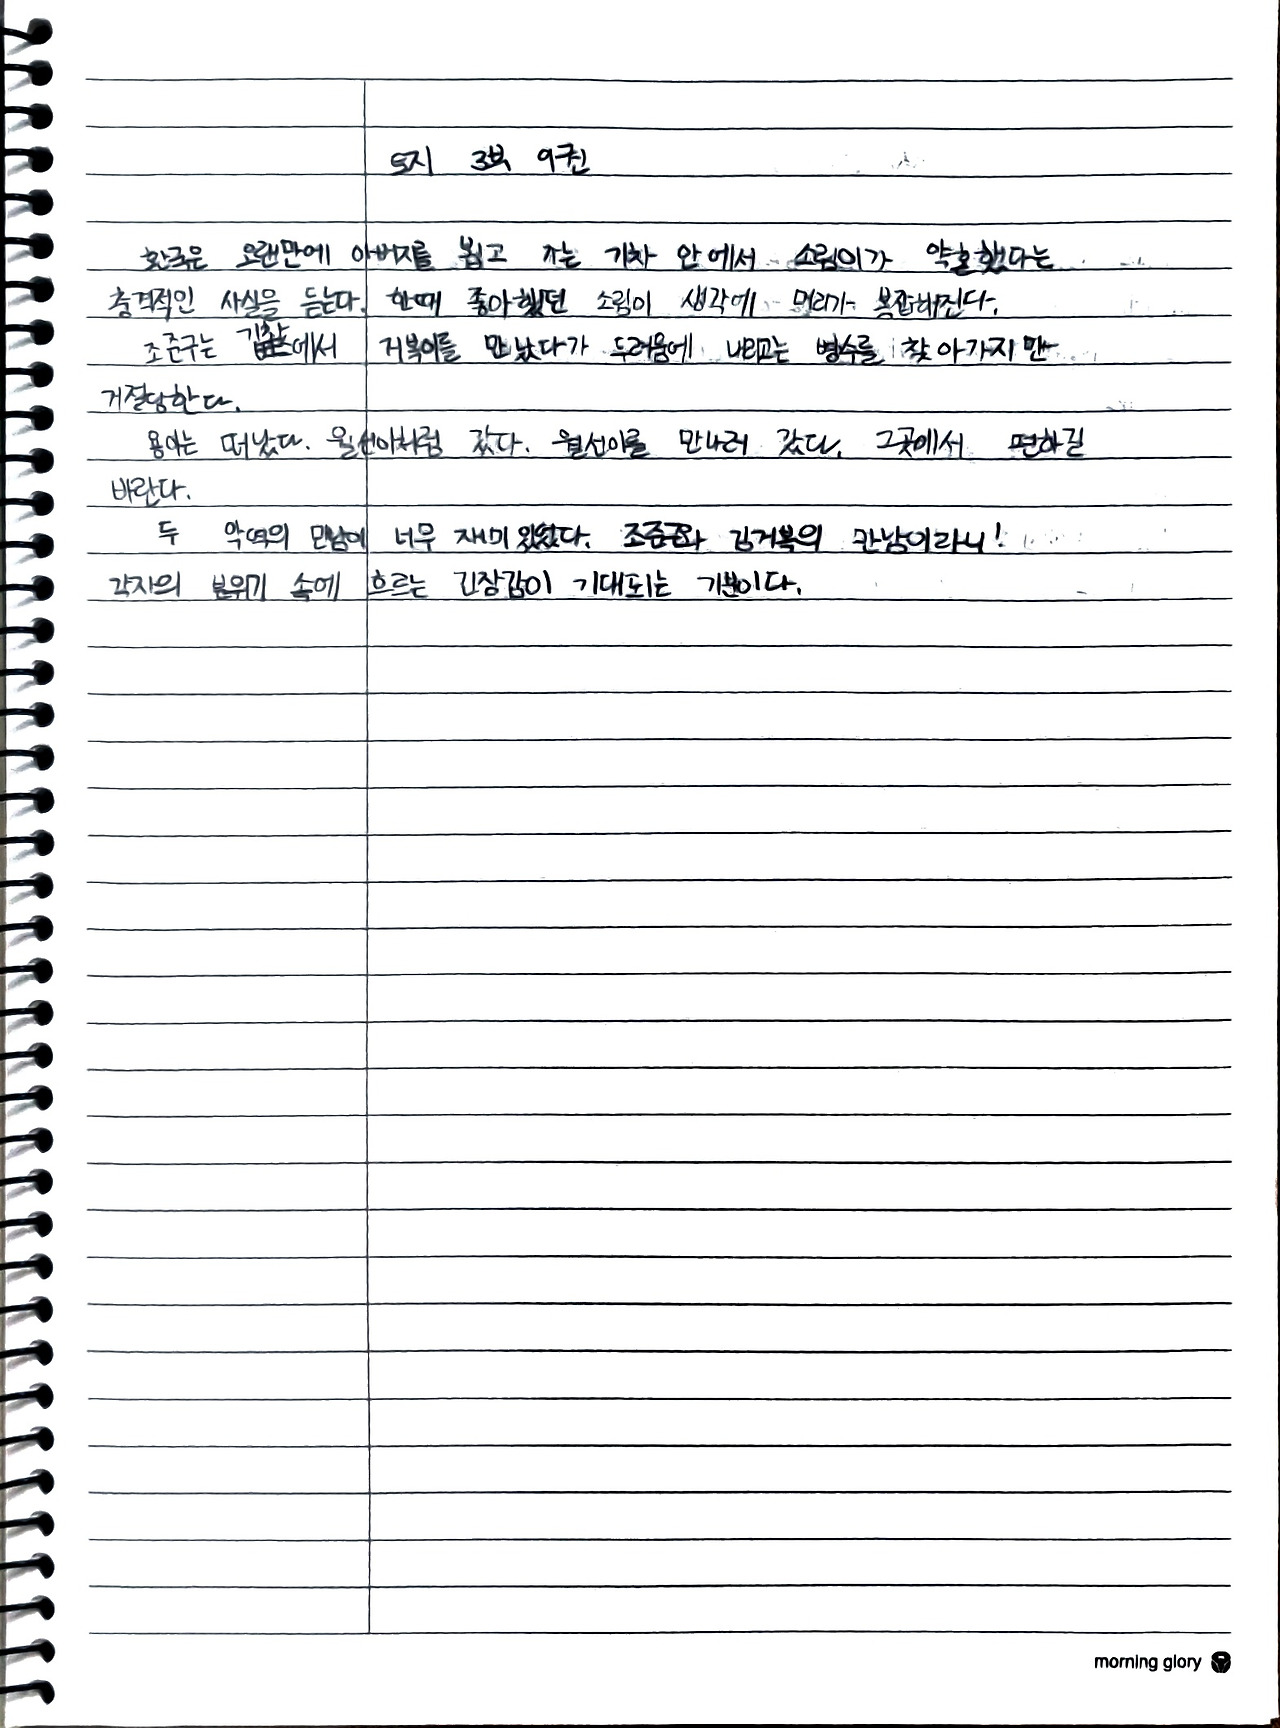 토지 3부 9권
환국은 오랜만에 아버지를 뵙고 가는 기차 안에서 소림이가 약혼했다는
충격적인 사실을 듣는다. 한때 좋아했던 소림이 생각에 머리가 복잡해진다.
조준구는 에서 거복이를 만났다가 두려움에 병수를 찾아가지만
거절당한다.
용이는 떠났다. 월선이처럼 갔다. 월선이를 만나러 갔다. 그곳에서 편하길
바란다.
두 악역의 만남에 너무 재미있었다. 조준구와 김거복의 만남이라니!
각자의 분위기 속에 흐르는 긴장감이 기대되는 기분이다.
morning glory